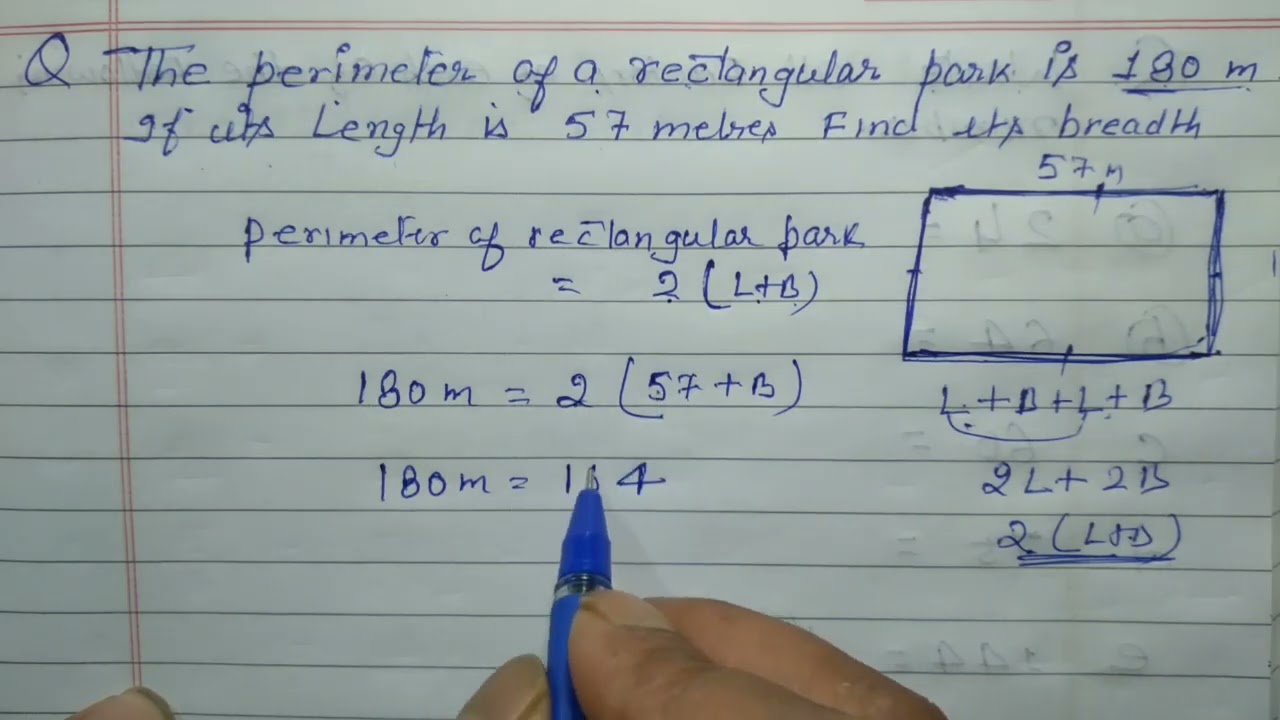 Q The perimeter of a rectangular park is 180 m
If its Length is 57 metres Find its breadth
57 m
perimeter of rectangular park
= 2 (L+B)
180 m = 2 (57 + B)
L + B + L + B
180 m = 114
2L + 2B
2 (L+B)